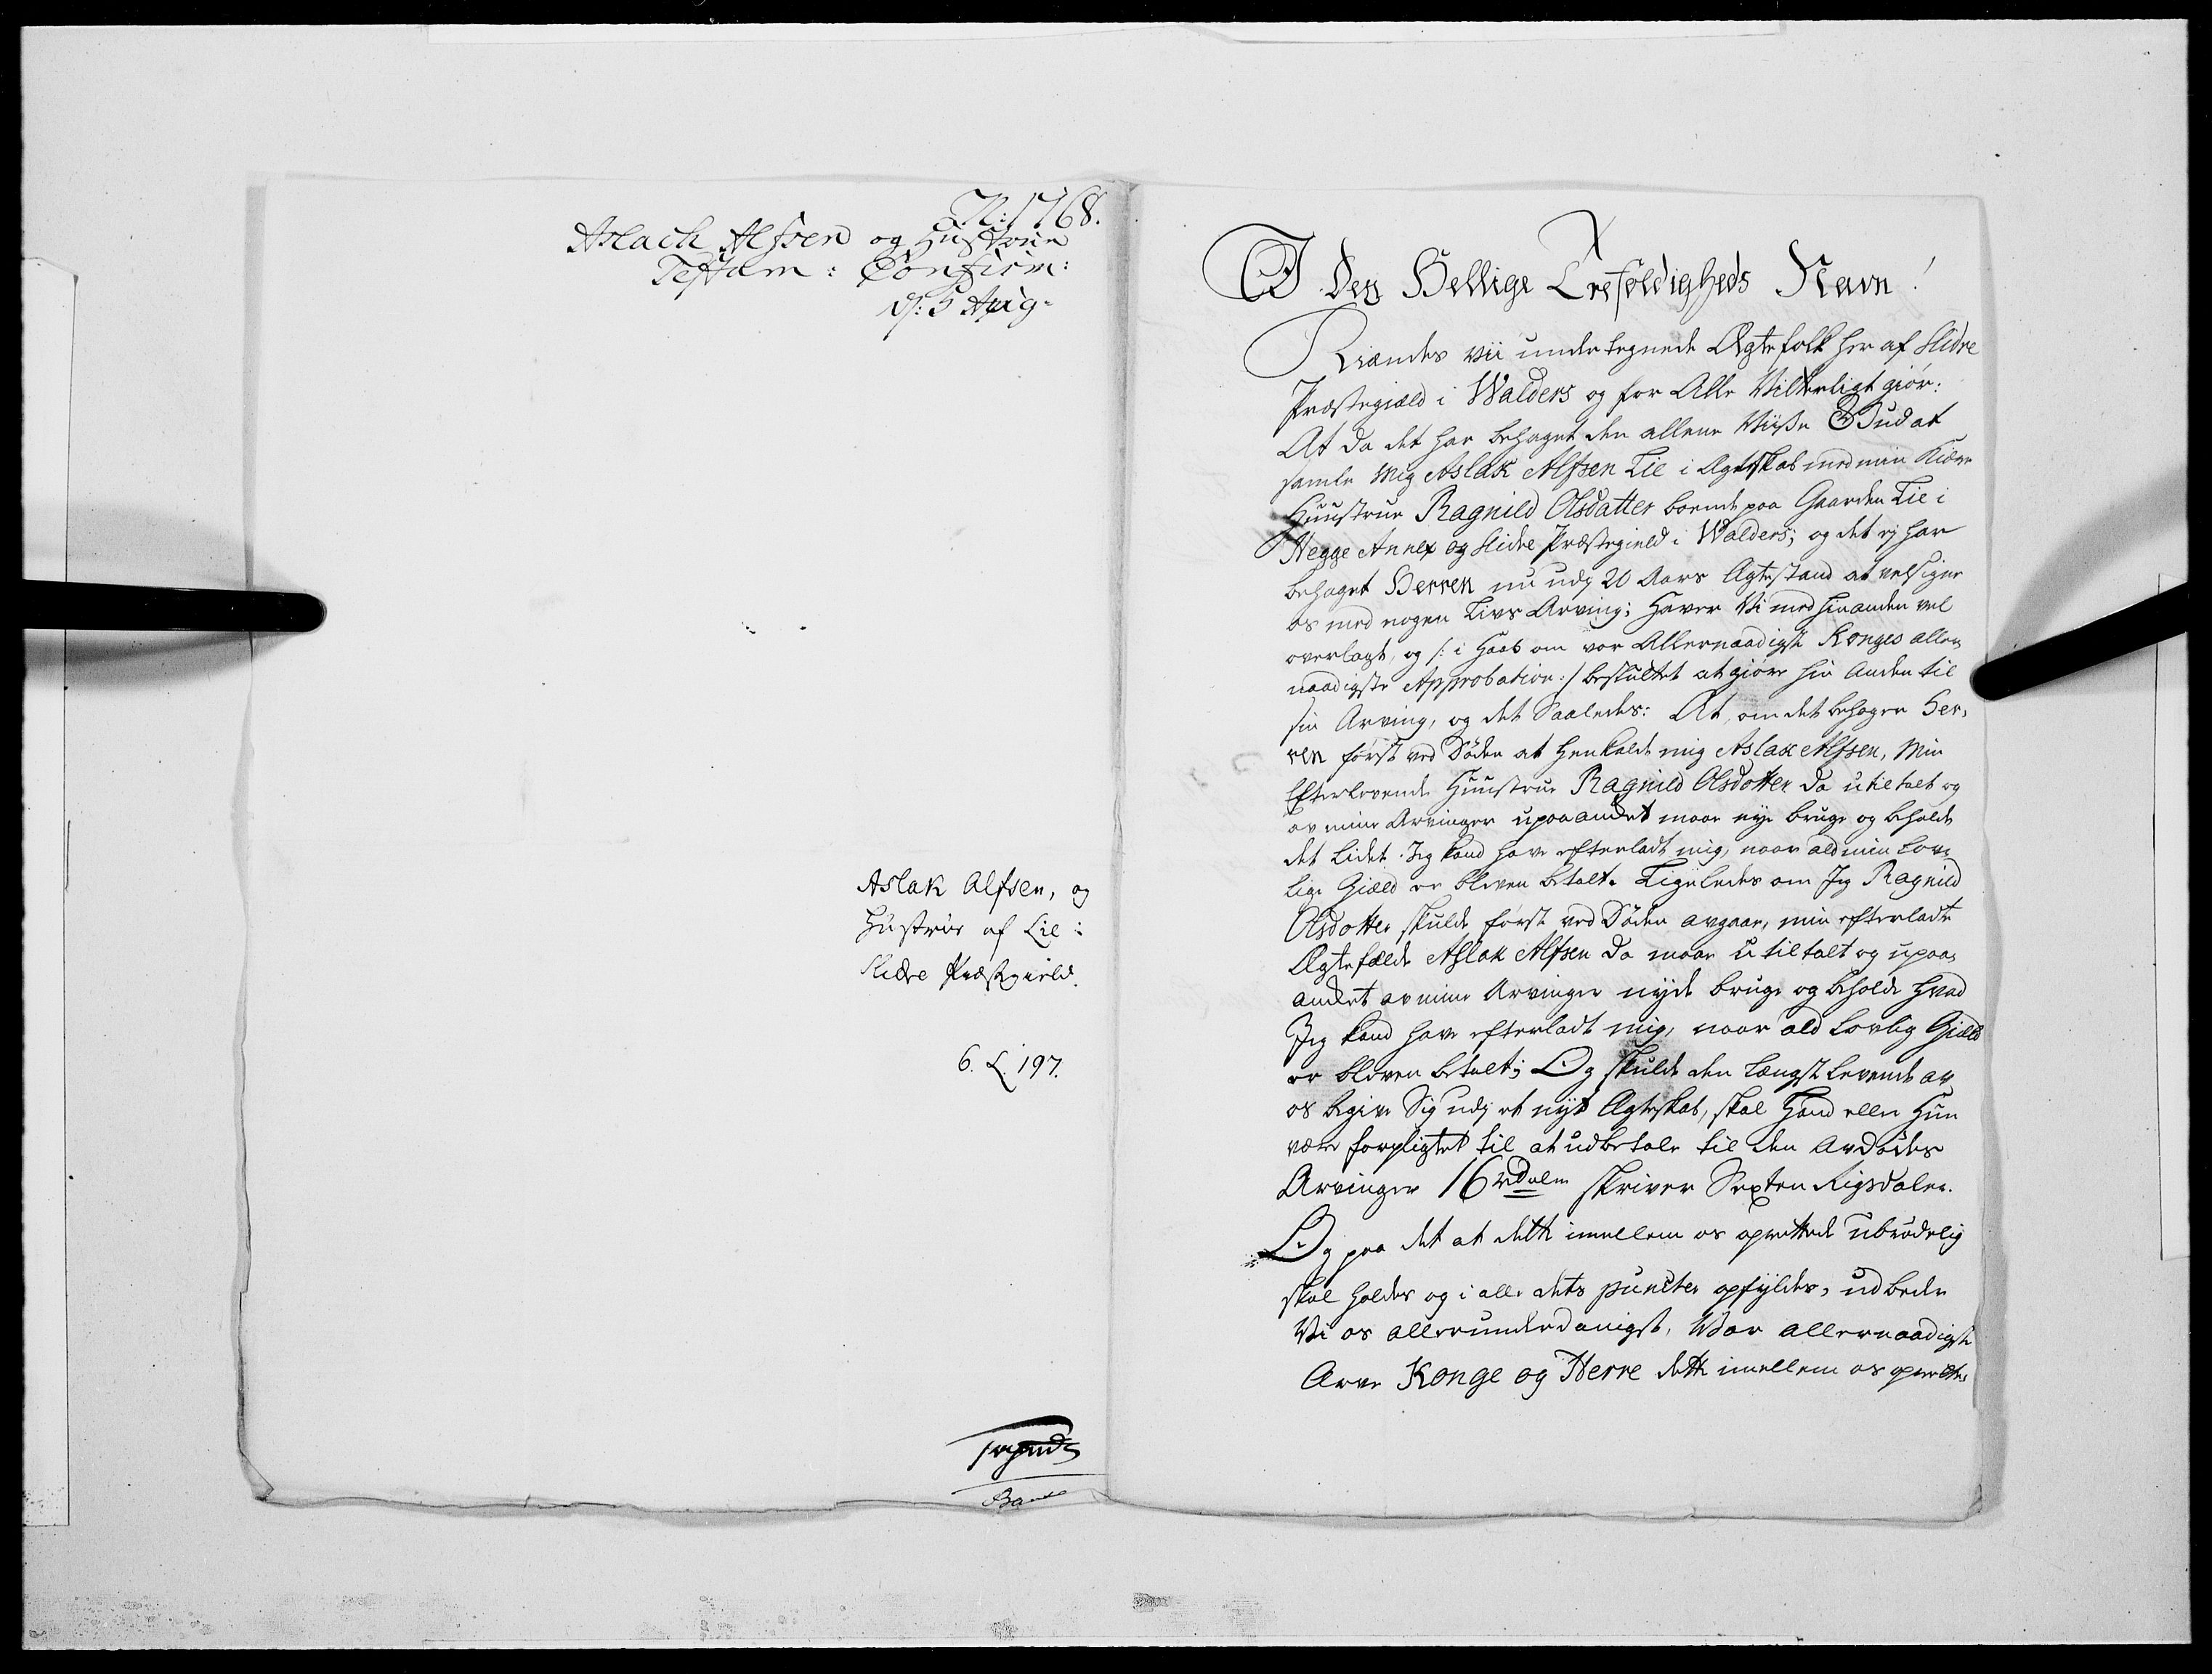 N: 1768.
Aslach Alfsen og Hustrue
Testam: Confirm:
d: 5 Aug.
Aslak Alfsen, og
Hustrue af Lie i
Slidre Præstegield.
6. L. 197.
I Den Hellige Trefoldigheds Navn!
Kiændes vii undertegnede Ægtefolk her af Slidre
Præstegiæld i Walders og for Alle Vitterligt giør:
At da det har behaget den allene Viiße Gud at
samle Mig Aslak Alfsen Lie i Ægteskab med min Kiære
Huustrue Ragnild Olsdatter boende paa Gaarden Lie i
Hegge Annex og Slidre Præstegield i Walders; og det ej har
behaget Herren nu udj 20 Aars Ægtestand at velsigne
os med nogen Livs Arving; Haver Vi med hinanden vel
overlagt, og /: i Haab om vor Allernaadigste Konges aller
naadigste Approbation :/ besluttet at giøre hin Anden til
sin Arving, og det Saaledes: At, om det behager Her,
ren først ved Døden at henkalde mig Aslak Alfsen, Min
Efterlevende Huustrue Ragnild Olsdotter da utiltalt og
av mine Arvinger upaaandet maae nye bruge og beholde
det Lidet Jeg kand have efterladt mig, naar ald min Lov,
lige Giæld er bleven betalt. Ligeledes om Jeg Ragnild
Olsdotter skulde først ved Døden avgaae, min efterladte
Ægtefælde Aslak Alfsen da maae u tiltalt og upaa,
andet av mine Arvinger nyde bruge og beholde hvad
Jeg kand have efterladt mig, naar ald Lovlig Giæld
er bleven betalt; Og skulde den Længst levende av
os begive Sig udj et nyt Ægteskab, skal Hand eller Hun
være forpligtet til at udbetale til den Avdødes
Arvinger 16 Rdaler skriver Sexten Rigsdaler.
Og paa det at dette imellem os oprettede ubrødelig
skal holdes og i alle dets puncter opfyldes, udbeder
Vi os allerunderdanigst, Vor allernaadigste
Arve Konge og Herre dette imellem os oprette,